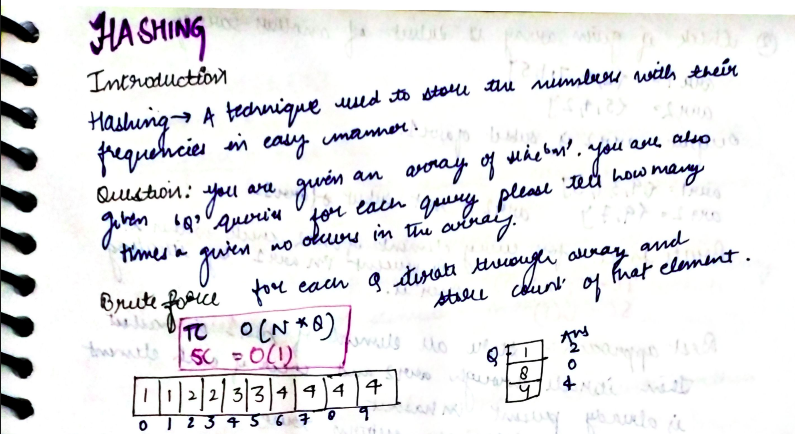 HASHING
Introduction
Hashing → A technique used to store the numbers with their
frequencies in easy manner.
Question: you are given an array of size 'n'. you are also
given 'Q' queries for each query please tell how many
times a given no occurs in the array.
Brute force for each Q iterate through array and
store count of that element.
TC O(N*Q)
SC = O(1)
Q Ans
1 2
8 0
4 4
1 1 2 2 3 3 4 4 4 4
0 1 2 3 4 5 6 7 8 9